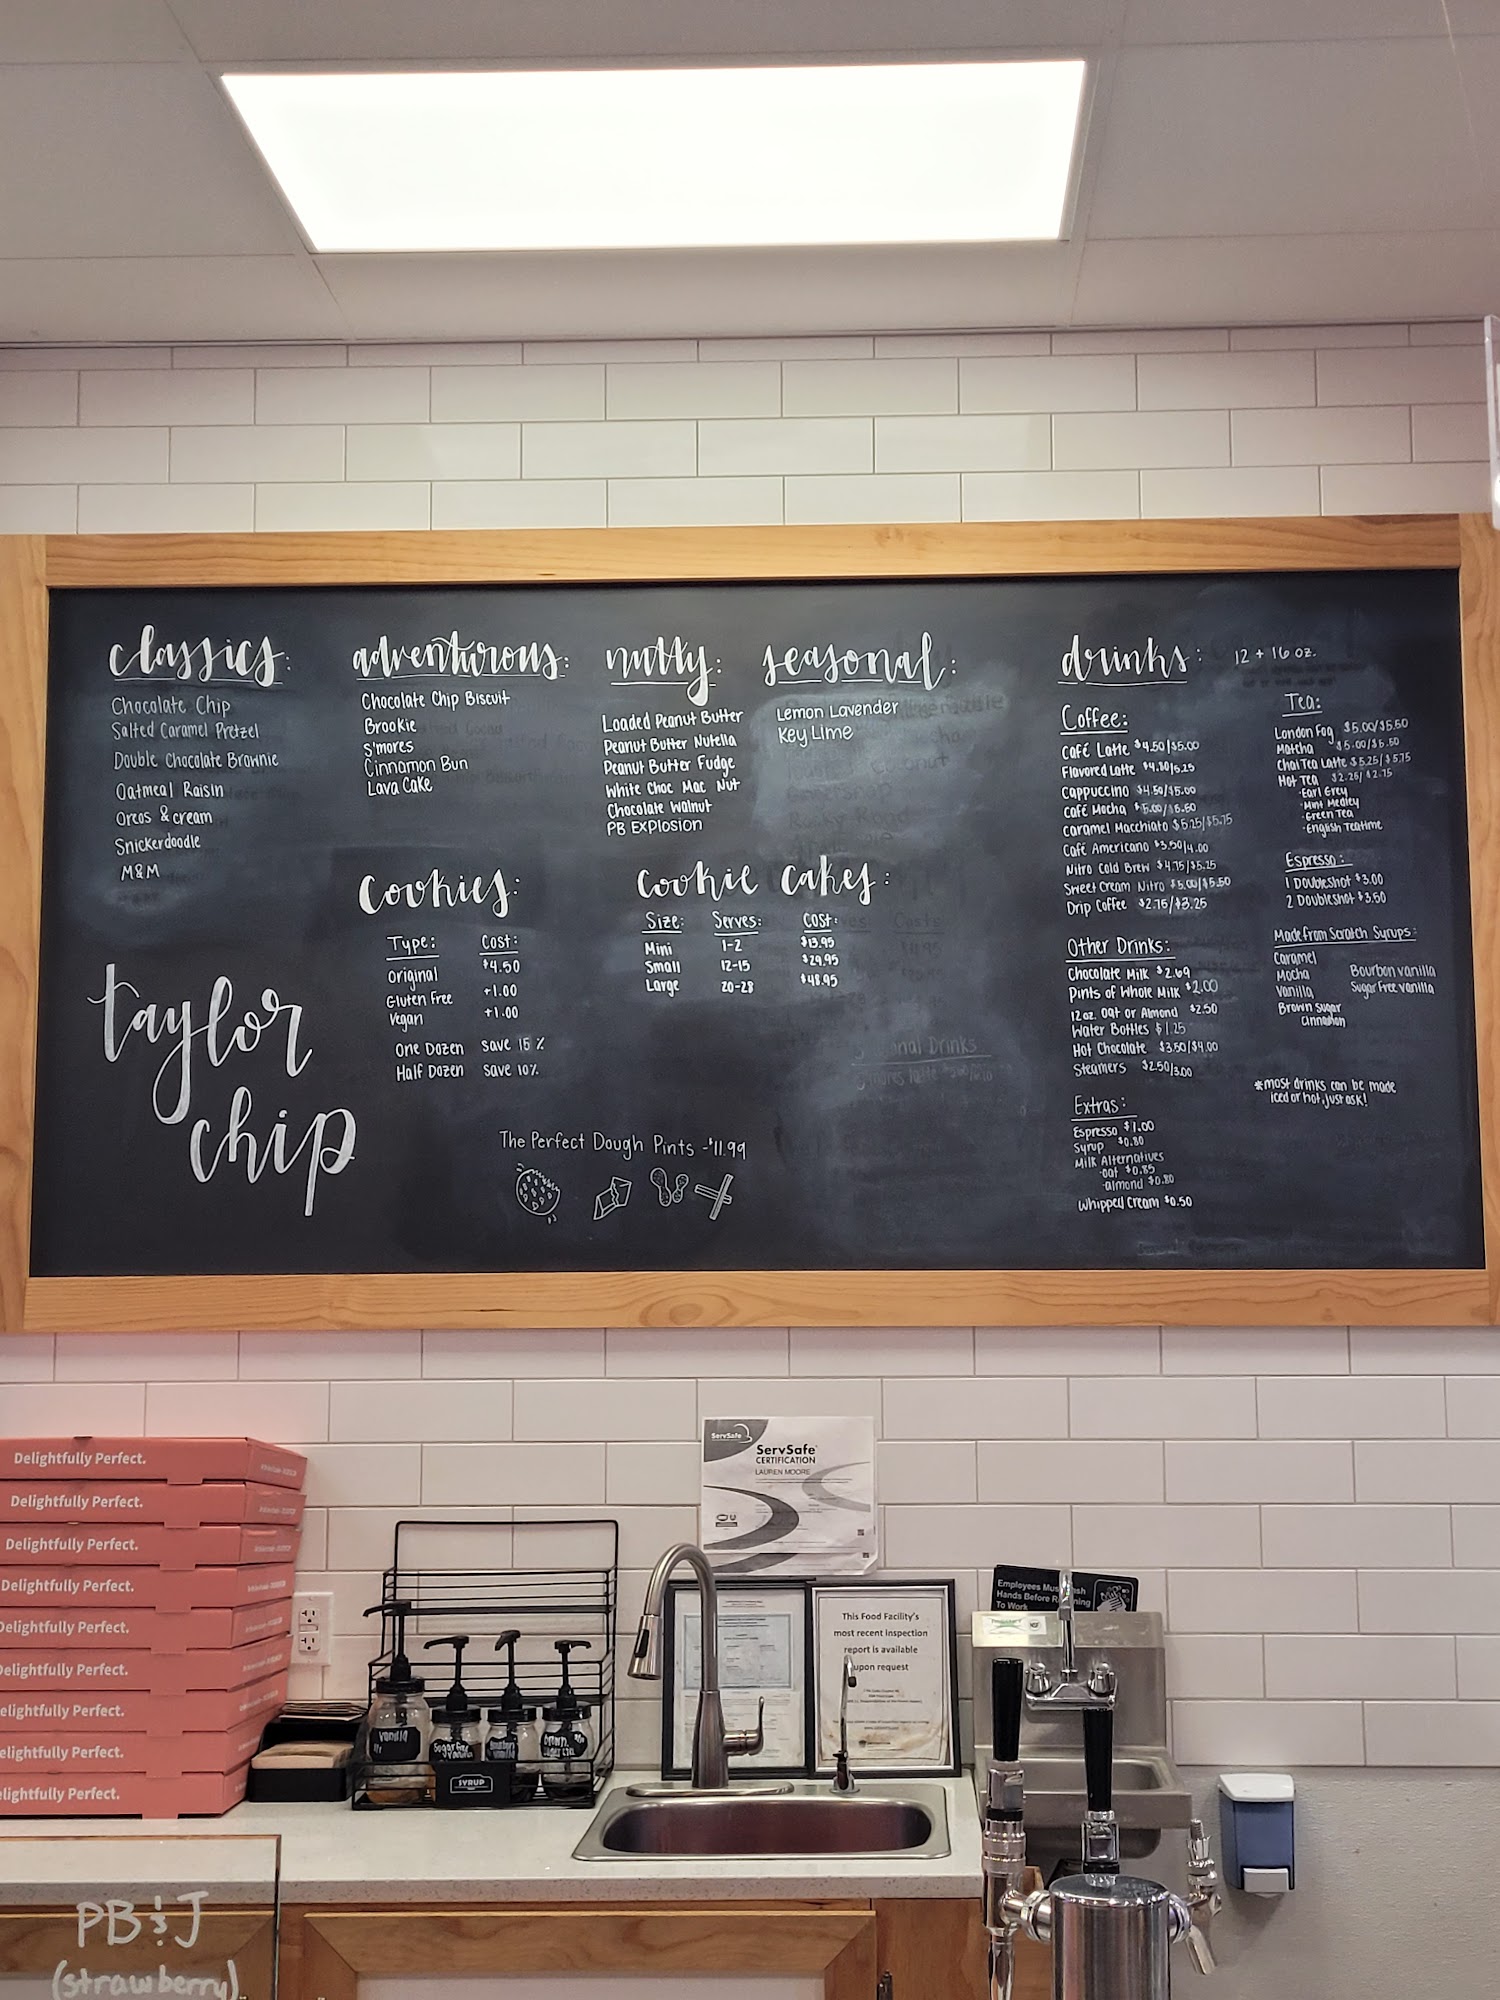 classics:
Chocolate Chip
Salted Caramel Pretzel
Double Chocolate Brownie
Oatmeal Raisin
Oreos & cream
Snickerdoodle
M&M
adventurous:
Chocolate Chip Biscuit
Brookie
S'mores
Cinnamon Bun
Lava Cake
nutty:
Loaded Peanut Butter
Peanut Butter Nutella
Peanut Butter Fudge
White Choc Mac Nut
Chocolate Walnut
PB Explosion
seasonal:
Lemon Lavender
Key Lime
cookies:
Type: Cost:
Original $4.50
Gluten Free +1.00
Vegan +1.00
One Dozen Save 15%
Half Dozen Save 10%
cookie cakes:
Size: Serves: Cost:
Mini 1-2 $13.95
Small 12-15 $29.95
Large 20-28 $48.95
taylor
chip
The Perfect Dough Pints - $11.99
drinks: 12 + 16 oz.
Coffee:
Café Latte $4.50/$5.00
Flavored Latte $4.80/5.25
Cappuccino $4.50/$5.00
Café Mocha $5.00/$5.50
Caramel Macchiato $5.25/$5.75
Café Americano $3.50/4.00
Nitro Cold Brew $4.75/$5.25
Sweet Cream Nitro $5.00/$5.50
Drip Coffee $2.75/$3.25
Other Drinks:
Chocolate Milk $2.69
Pints of Whole Milk $2.00
12oz. Oat or Almond $2.50
Water Bottles $1.25
Hot Chocolate $3.50/$4.00
Steamers $2.50/3.00
Extras:
Espresso $1.00
Syrup $0.80
Milk Alternatives
-oat $0.85
-almond $0.80
Whipped Cream $0.50
Tea:
London Fog $5.00/$5.50
Matcha $5.00/$5.50
Chai Tea Latte $5.25/$5.75
Hot Tea $2.25/$2.75
-Earl Grey
-Mint Medley
-Green Tea
-English Teatime
Espresso:
1 Doubleshot $3.00
2 Doubleshot $3.50
Made from Scratch Syrups:
Caramel
Mocha
Vanilla
Brown Sugar
Cinnamon
Bourbon Vanilla
Sugar Free Vanilla
*most drinks can be made
iced or hot, just ask!
Delightfully Perfect.
Delightfully Perfect.
Delightfully Perfect.
Delightfully Perfect.
Delightfully Perfect.
Delightfully Perfect.
elightfully Perfect.
elightfully Perfect.
elightfully Perfect.
ServSafe
ServSafe
CERTIFICATION
LAUREN MOORE
This Food Facility's
most recent Inspection
report is available
upon request
Employees Must Wash
Hands Before
To Work
Vanilla
Sugar Free
Vanilla
Bourbon
Vanilla
SYRUP
PB & J
(strawberry)